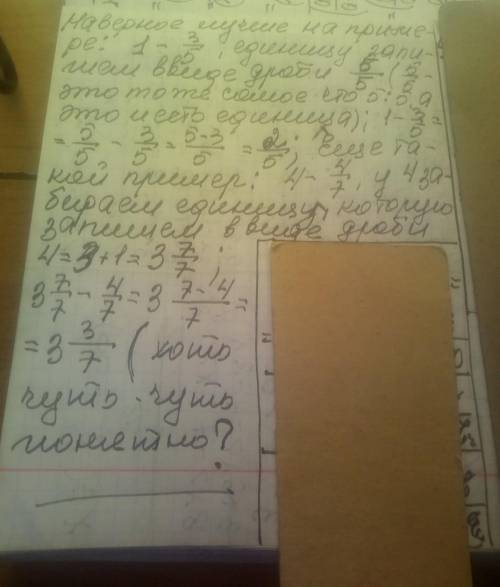 Наверное лучше на приме-
ре: 1 - 3/5, единицу запи-
шем в виде дроби 5/5 (5/5 -
это тоже самое что 5:5, а
это и есть единица); 1 - 3/5 =
= 5/5 - 3/5 = 5-3/5 = 2/5; Еще та-
кой пример: 4 - 4/7, у 4 за-
бираем единицу, которую
запишем в виде дроби
4 = 3 + 1 = 3 7/7;
3 7/7 - 4/7 = 3 7-4/7 =
= 3 3/7 (хоть
чуть-чуть
понятно?